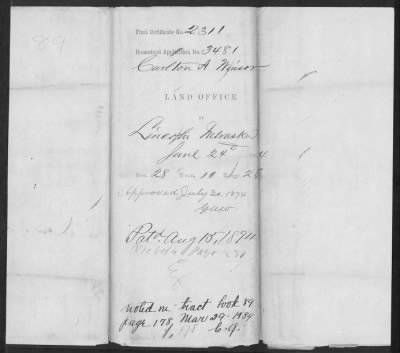 89
Final Certificate No. 2311
Homestead Application No. 3481
Carlton A
LAND OFFICE
at
Lincoln Nebraska
June 24
28 10 2 E
Approved July 20, 1874
Pat'd Aug 15, 1874
Page
noted in tract book 89
page 178, Mar 29-1934
C.G.